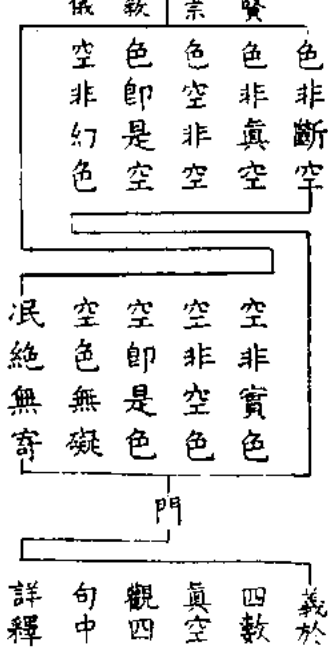 賢
色非斷空
色非眞空
色空非空
色即是空
空非幻色
空非實色
空非空色
空即是色
空色無礙
冺絕無寄
門
義於
四數
眞空
觀四
句中
詳釋